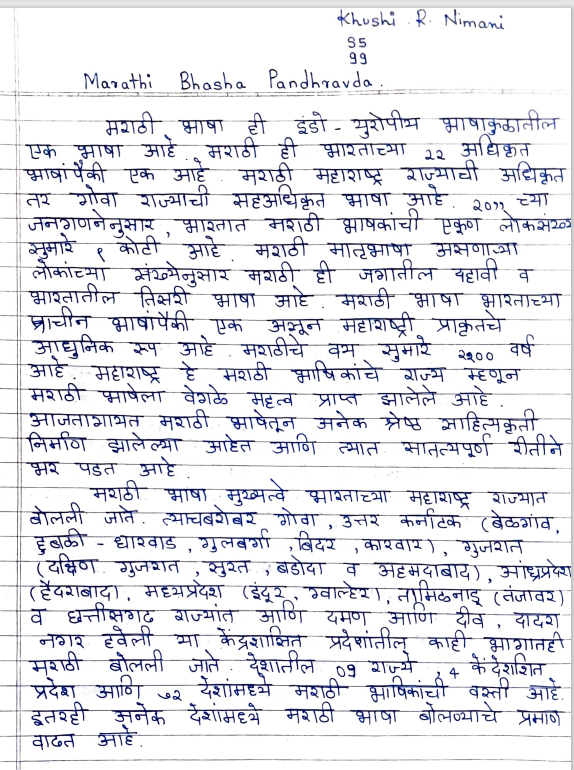 Khushi . R. Nimani
S5
99
Marathi Bhasha Pandhravda.
मराठी भाषा ही इंडो - युरोपीय भाषाकुळातील
एक भाषा आहे. मराठी ही भारताच्या २२ अधिकृत
भाषांपैकी एक आहे. मराठी महाराष्ट्र राज्याची अधिकृत
तर गोवा राज्याची सहअधिकृत भाषा आहे. २०११ च्या
जनगणनेनुसार, भारतात मराठी भाषकांची एकूण
सुमारे ९ कोटी आहे. मराठी मातृभाषा असणाऱ्या
लोकांच्या संख्येनुसार मराठी ही जगातील दहावी व
भारतातील तिसरी भाषा आहे. मराठी भाषा भारताच्या
प्राचीन भाषांपैकी एक असून महाराष्ट्री प्राकृतचे
आधुनिक रूप आहे. मराठीचे वय सुमारे वर्ष
आहे. महाराष्ट्र हे मराठी भाषिकांचे राज्य म्हणून
मराठी भाषेला वेगळे महत्व प्राप्त झालेले आहे.
आजतागायत मराठी भाषेतून अनेक श्रेष्ठ साहित्यकृती
निर्माण झालेल्या आहेत आणि त्यात सातत्यपूर्ण रीतीने
भर पडत आहे.
मराठी भाषा मुख्यत्वे भारताच्या महाराष्ट्र राज्यात
बोलली जाते. त्याचबरोबर गोवा, उत्तर कर्नाटक (बेळगांव,
हुबळी - धारवाड, गुलबर्गा, बिदर, कारवार), गुजरात
(दक्षिण गुजरात, सुरत, बडोदा व अहमदाबाद), आंध्रप्रदेश
(हैदराबाद), मध्यप्रदेश (इंदूर, ग्वाल्हेर), तामिळनाडू (तंजावर)
व छत्तीसगढ राज्यांत आणि दमण आणि दीव, दादरा
नगर हवेली या केंद्रशासित प्रदेशांतील काही भागातही
मराठी बोलली जाते. देशातील 09 राज्ये, 4 केंदेशशित
प्रदेश आणि ७२ देशांमध्ये मराठी भाषिकांची वस्ती आहे.
इतरही अनेक देशांमध्ये मराठी भाषा बोलण्याचे प्रमाण
वाढत आहे.